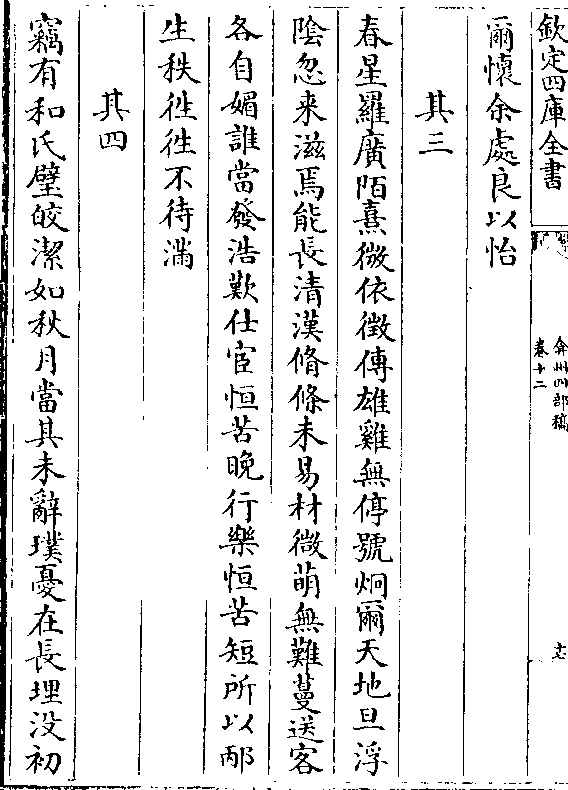 欽定四庫全書
弇州四部稿
卷十二
爾懷余處良以怡
其三
春星羅廣陌熹微依徴傳雄雞無停號炯爾天地旦浮
陰忽来滋焉能長清漢脩條未易材微萌無難蔓送客
各自媚誰當發浩歎仕宦恒苦晚行樂恒苦短所以邴
生秩徃徃不待滿
其四
竊有和氏璧皎潔如秋月當其未辭璞憂在長埋没初